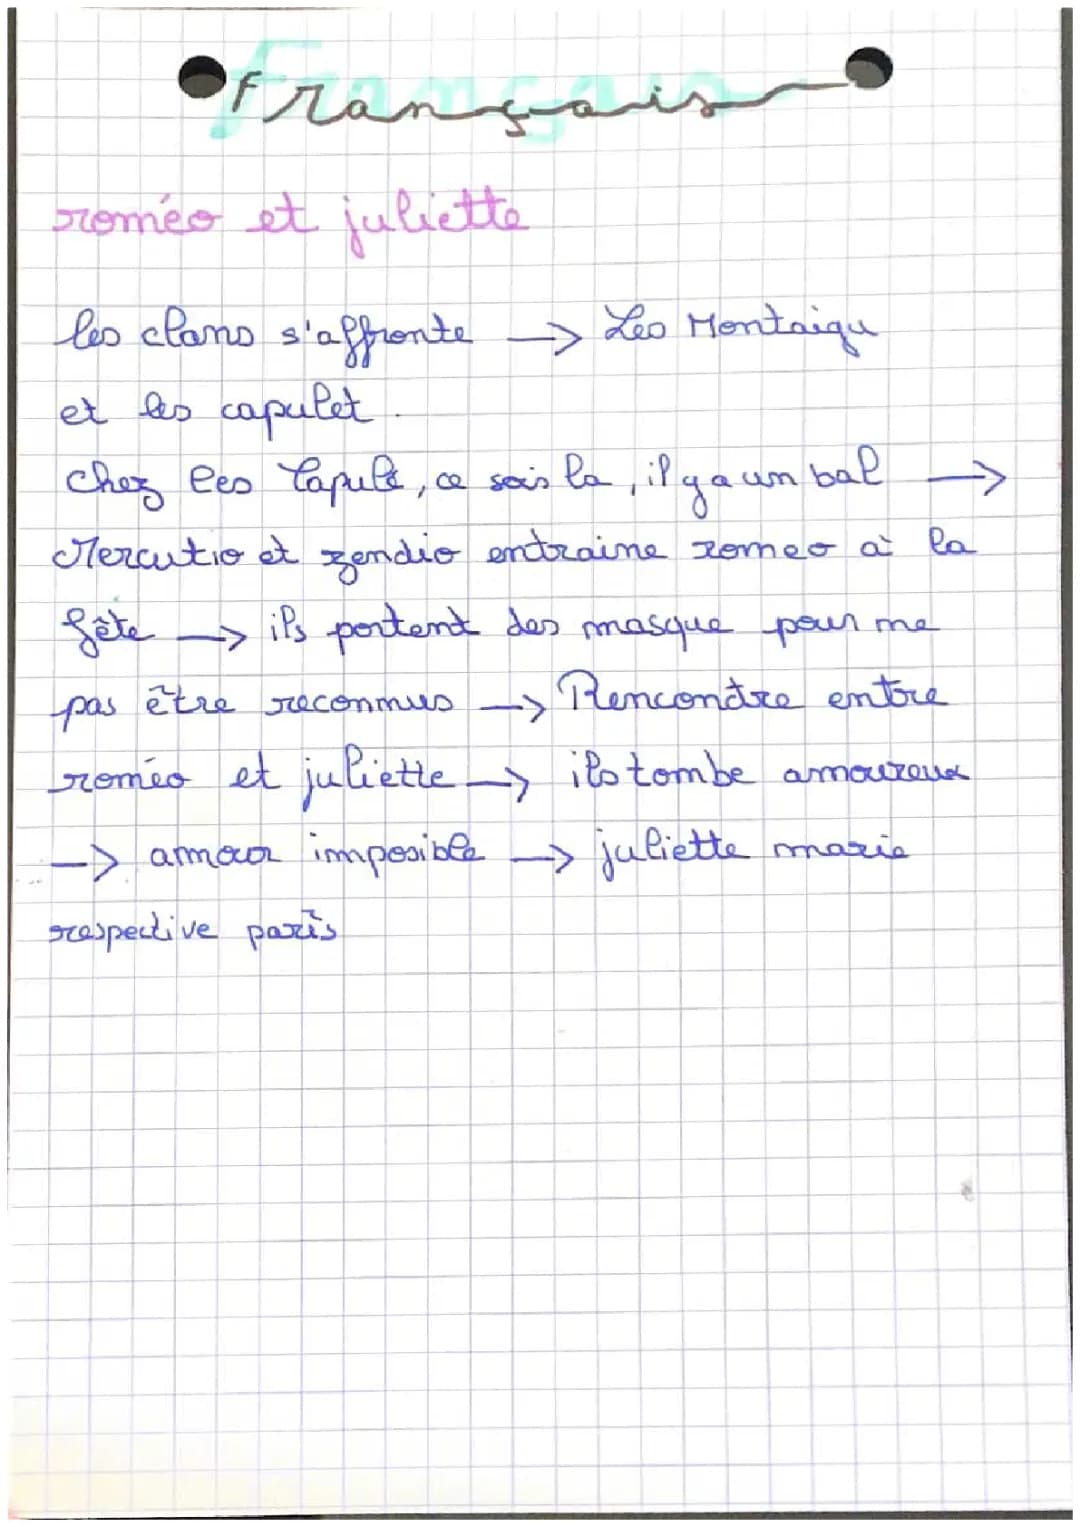 Français
roméo et juliette
les clans s'affronte -> Les Montaigu
et les capulet.
Chez les Capulé, ce sois la, il y a un bal ->
Mercutio et zendio entraine romeo à la
fête -> ils portent des masque pour ne
pas être reconnus -> Rencondre entre
roméo et juliette -> ils tombe amoureux
-> amour imposible -> juliette marie
respective paris